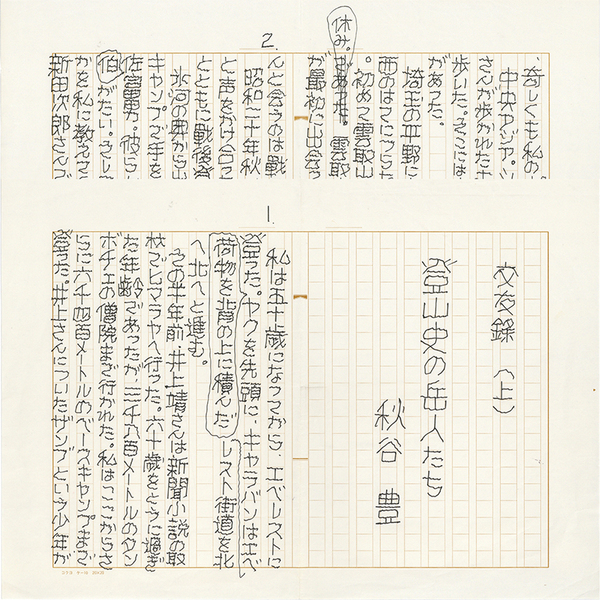 1.
交友録（上）
登山史の岳人たち
秋谷豊
私は五十歳になってから、エベレストに
登った。ヤクを先頭に、キャラバンはエベ
荷物を背の上に積んだ
レスト街道を北
へ北へと進む。
その半年前、井上靖さんは新聞小説の取
材でヒマラヤへ行った。六十歳をとうに過ぎ
た年齢であったが、三千八百メートルのタン
ボチェの僧院まで行かれた。私はここからさ
らに六千四百メートルのベースキャンプまで
登った。井上さんについたザンブという少年が
2.
、奇しくも私の
中央アジア、シ
さんが歩かれた
歩いた。そこには
があった。
埼玉の平野に
西のはてにつらな
。初めて雲取山
休み。
雲取
が最初に出会
んと会うのは戦
昭和二十年秋
と声をかけ合っ
とともに戦後登
氷河の奥から出
キャンプで手を
佐富男。彼ら
伯がたい。そし
かを私に教えて
新田次郎さんが